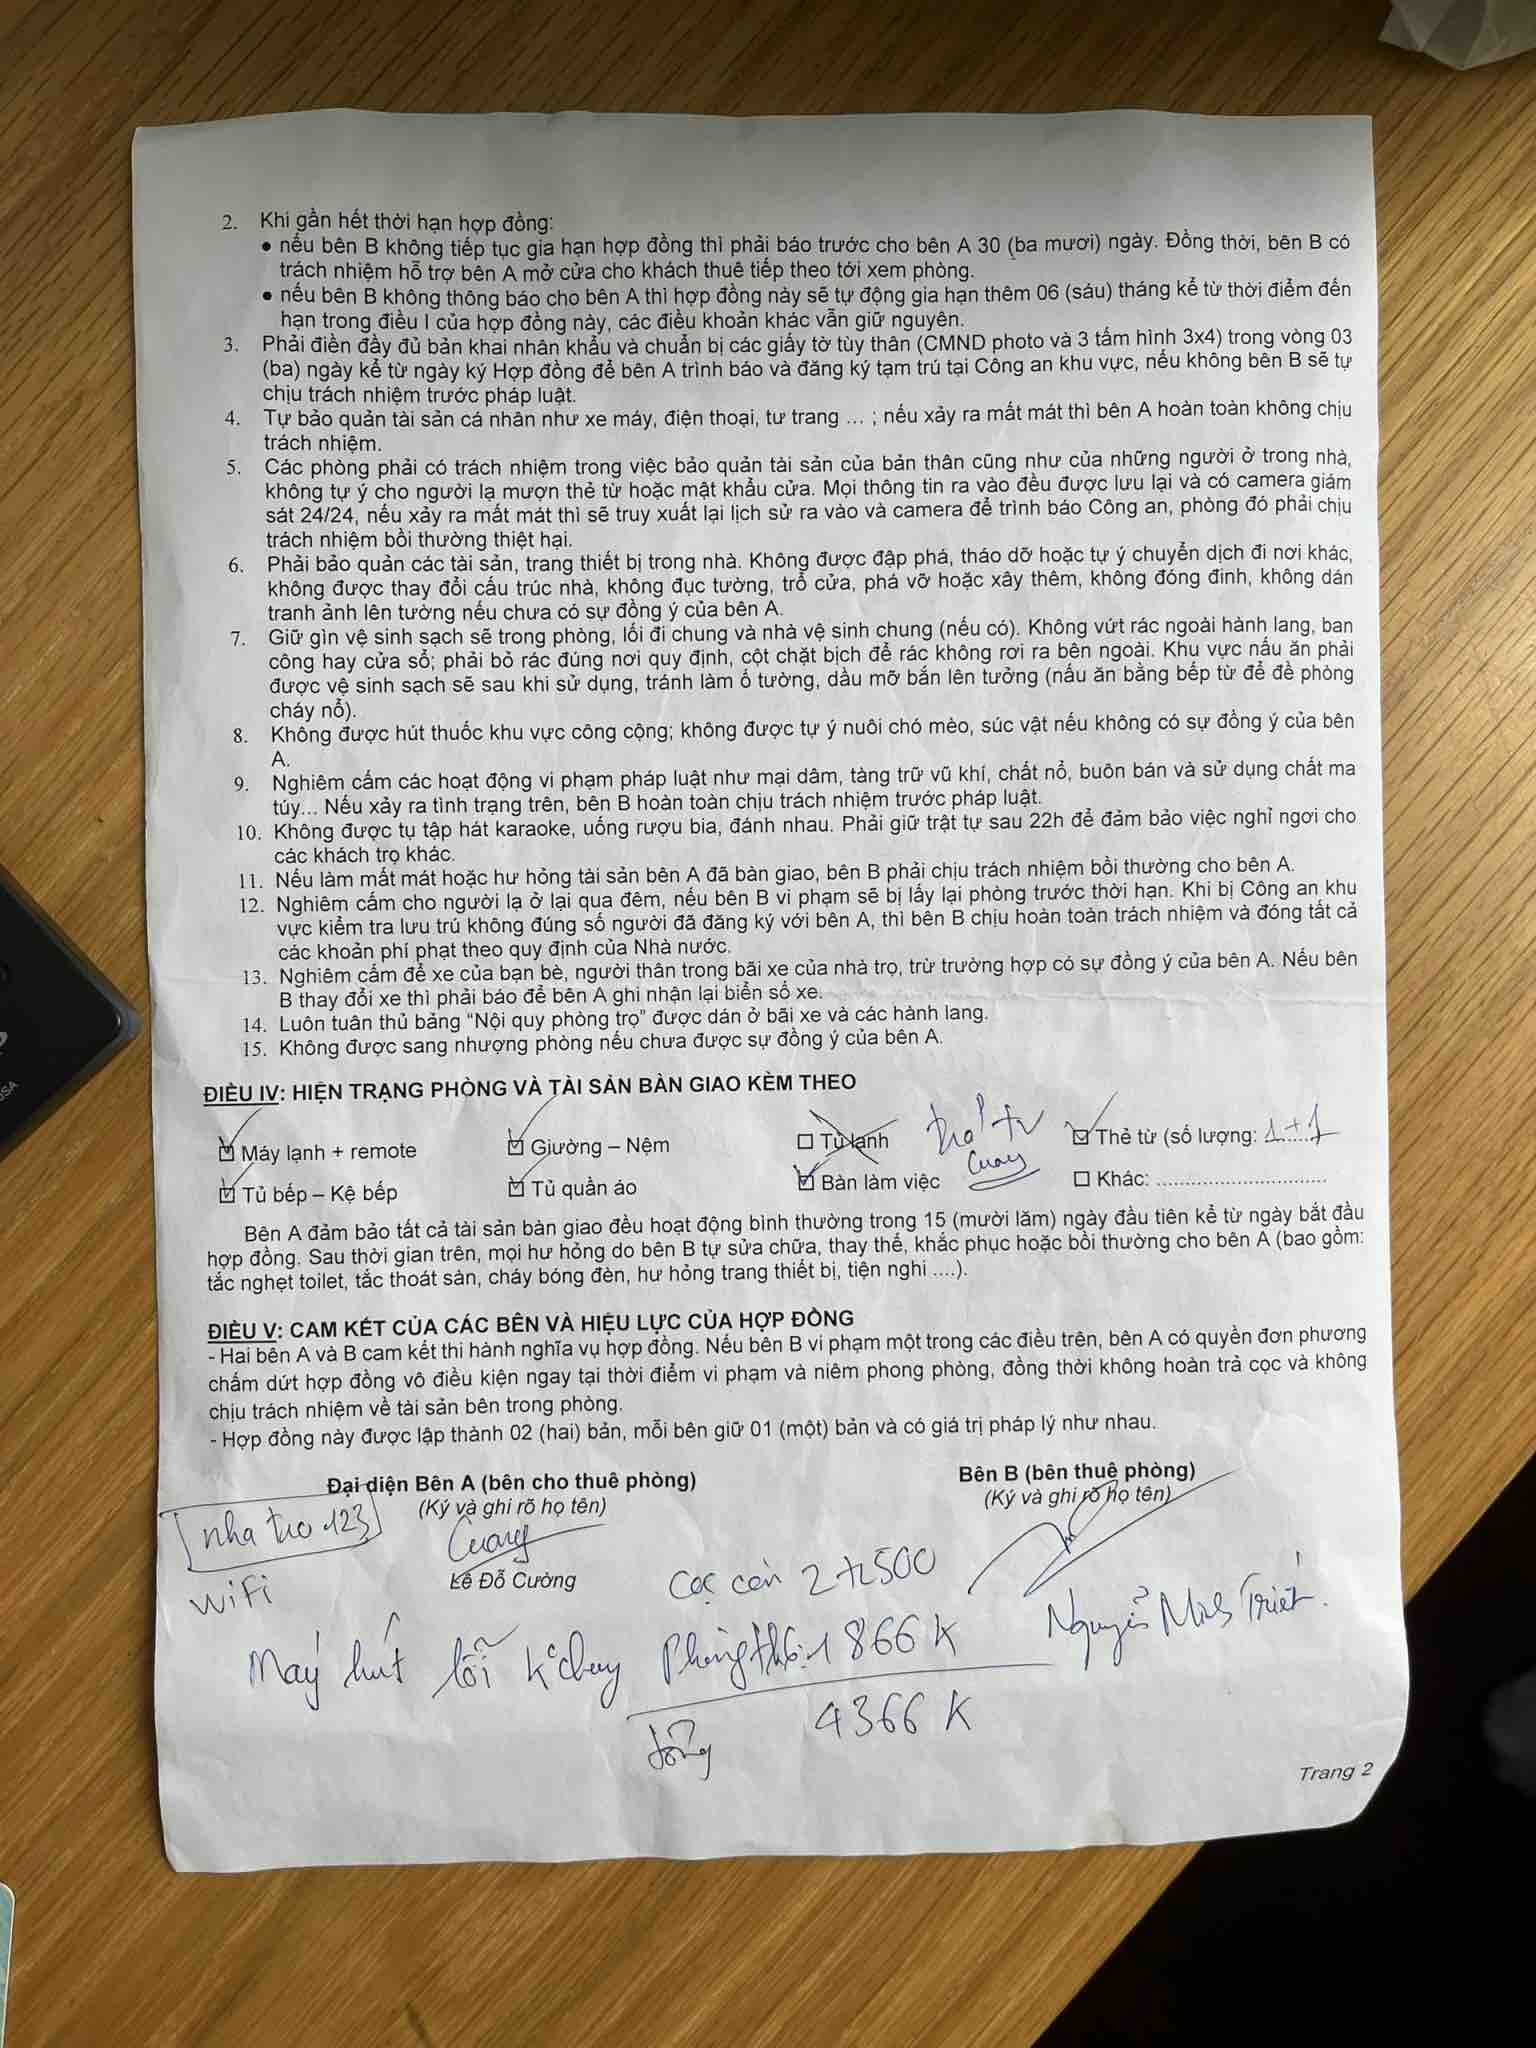 2. Khi gần hết thời hạn hợp đồng:
● nếu bên B không tiếp tục gia hạn hợp đồng thì phải báo trước cho bên A 30 (ba mươi) ngày. Đồng thời, bên B có
trách nhiệm hỗ trợ bên A mở cửa cho khách thuê tiếp theo tới xem phòng.
● nếu bên B không thông báo cho bên A thì hợp đồng này sẽ tự động gia hạn thêm 06 (sáu) tháng kể từ thời điểm đến
hạn trong điều I của hợp đồng này, các điều khoản khác vẫn giữ nguyên.
3. Phải điền đầy đủ bản khai nhân khẩu và chuẩn bị các giấy tờ tùy thân (CMND photo và 3 tấm hình 3x4) trong vòng 03
(ba) ngày kể từ ngày ký Hợp đồng để bên A trình báo và đăng ký tạm trú tại Công an khu vực, nếu không bên B sẽ tự
chịu trách nhiệm trước pháp luật.
4. Tự bảo quản tài sản cá nhân như xe máy, điện thoại, tư trang ... ; nếu xảy ra mất mát thì bên A hoàn toàn không chịu
trách nhiệm.
5. Các phòng phải có trách nhiệm trong việc bảo quản tài sản của bản thân cũng như của những người ở trong nhà,
không tự ý cho người lạ mượn thẻ từ hoặc mật khẩu cửa. Mọi thông tin ra vào đều được lưu lại và có camera giám
sát 24/24, nếu xảy ra mất mát thì sẽ truy xuất lại lịch sử ra vào và camera để trình báo Công an, phòng đó phải chịu
trách nhiệm bồi thường thiệt hại.
6. Phải bảo quản các tài sản, trang thiết bị trong nhà. Không được đập phá, tháo dỡ hoặc tự ý chuyển dịch đi nơi khác,
không được thay đổi cấu trúc nhà, không đục tường, trổ cửa, phá vỡ hoặc xây thêm, không đóng đinh, không dán
tranh ảnh lên tường nếu chưa có sự đồng ý của bên A.
7. Giữ gìn vệ sinh sạch sẽ trong phòng, lối đi chung và nhà vệ sinh chung (nếu có). Không vứt rác ngoài hành lang, ban
công hay cửa sổ; phải bỏ rác đúng nơi quy định, cột chặt bịch để rác không rơi ra bên ngoài. Khu vực nấu ăn phải
được vệ sinh sạch sẽ sau khi sử dụng, tránh làm ố tường, dầu mỡ bắn lên tưởng (nấu ăn bằng bếp từ để đề phòng
cháy nổ).
8. Không được hút thuốc khu vực công cộng; không được tự ý nuôi chó mèo, súc vật nếu không có sự đồng ý của bên
A.
9. Nghiêm cấm các hoạt động vi phạm pháp luật như mại dâm, tàng trữ vũ khí, chất nổ, buôn bán và sử dụng chất ma
túy... Nếu xảy ra tình trạng trên, bên B hoàn toàn chịu trách nhiệm trước pháp luật.
10. Không được tụ tập hát karaoke, uống rượu bia, đánh nhau. Phải giữ trật tự sau 22h để đảm bảo việc nghỉ ngơi cho
các khách trọ khác.
11. Nếu làm mất mát hoặc hư hỏng tài sản bên A đã bàn giao, bên B phải chịu trách nhiệm bồi thường cho bên A.
12. Nghiêm cấm cho người lạ ở lại qua đêm, nếu bên B vi phạm sẽ bị lấy lại phòng trước thời hạn. Khi bị Công an khu
vực kiểm tra lưu trú không đúng số người đã đăng ký với bên A, thì bên B chịu hoàn toàn trách nhiệm và đóng tất cả
các khoản phí phạt theo quy định của Nhà nước.
13. Nghiêm cấm để xe của bạn bè, người thân trong bãi xe của nhà trọ, trừ trường hợp có sự đồng ý của bên A. Nếu bên
B thay đổi xe thì phải báo để bên A ghi nhận lại biển số xe.
14. Luôn tuân thủ bảng “Nội quy phòng trọ” được dán ở bãi xe và các hành lang.
15. Không được sang nhượng phòng nếu chưa được sự đồng ý của bên A.
ĐIỀU IV: HIỆN TRẠNG PHÒNG VÀ TÀI SẢN BÀN GIAO KÈM THEO
☑ Máy lạnh + remote ☑ Giường – Nệm ☐ Tủ lạnh trả tủ Cuong ☑ Thẻ từ (số lượng: 1+1)
☑ Tủ bếp – Kệ bếp ☑ Tủ quần áo ☑ Bàn làm việc ☐ Khác: ..............................
Bên A đảm bảo tất cả tài sản bàn giao đều hoạt động bình thường trong 15 (mười lăm) ngày đầu tiên kể từ ngày bắt đầu
hợp đồng. Sau thời gian trên, mọi hư hỏng do bên B tự sửa chữa, thay thế, khắc phục hoặc bồi thường cho bên A (bao gồm:
tắc nghẹt toilet, tắc thoát sàn, cháy bóng đèn, hư hỏng trang thiết bị, tiện nghi ....).
ĐIỀU V: CAM KẾT CỦA CÁC BÊN VÀ HIỆU LỰC CỦA HỢP ĐỒNG
- Hai bên A và B cam kết thi hành nghĩa vụ hợp đồng. Nếu bên B vi phạm một trong các điều trên, bên A có quyền đơn phương
chấm dứt hợp đồng vô điều kiện ngay tại thời điểm vi phạm và niêm phong phòng, đồng thời không hoàn trả cọc và không
chịu trách nhiệm về tài sản bên trong phòng.
- Hợp đồng này được lập thành 02 (hai) bản, mỗi bên giữ 01 (một) bản và có giá trị pháp lý như nhau.
Đại diện Bên A (bên cho thuê phòng) Bên B (bên thuê phòng)
(Ký và ghi rõ họ tên) (Ký và ghi rõ họ tên)
nha tro 123 Cuong
Lê Đỗ Cường
wifi
Cọc còn 2tr500
Nguyễn Minh Triết
Máy hút lỗi k chạy Phòng th6: 1866K
tổng 4366K
Trang 2